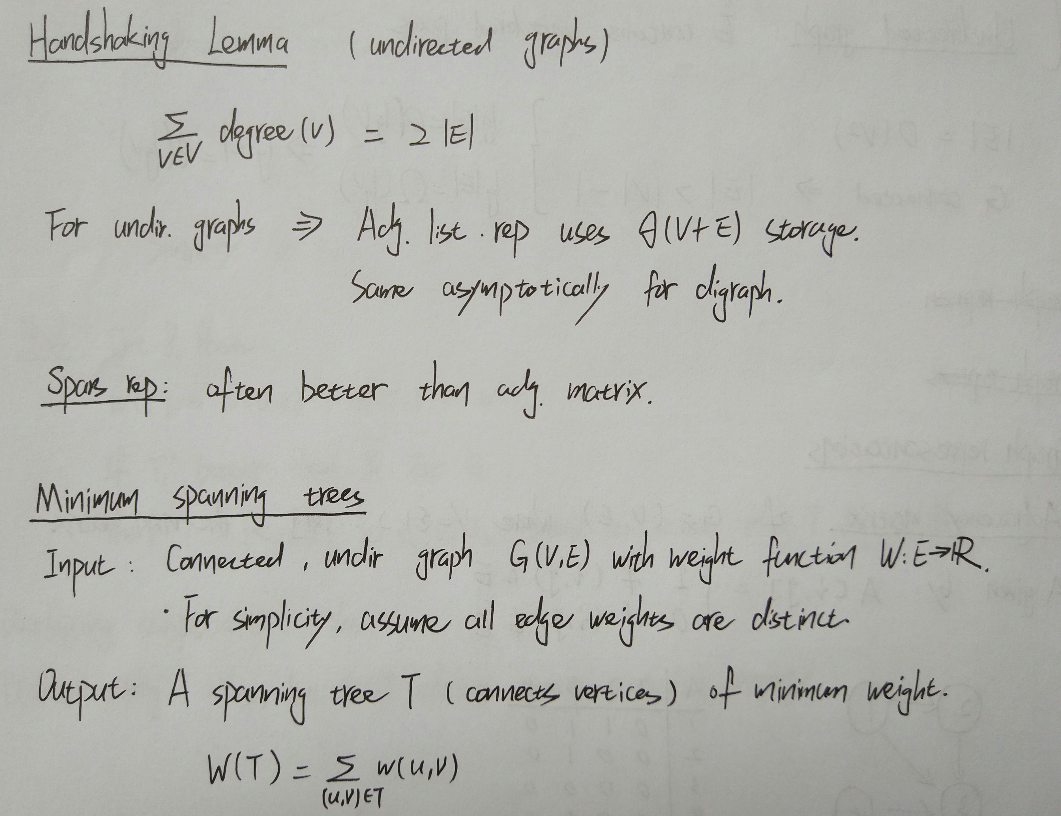 Handshaking Lemma (undirected graphs)
Σ degree(v) = 2|E|
V∈V
For undir. graphs ⇒ Adj. list. rep uses Θ(V+E) storage.
Same asymptotically for digraph.
Spars rep: often better than adj. matrix.
Minimum spanning trees
Input: Connected, undir graph G(V,E) with weight function W:E→ℝ.
· For simplicity, assume all edge weights are distinct.
Output: A spanning tree T (connects vertices) of minimum weight.
W(T) = Σ w(u,v)
(u,v)∈T